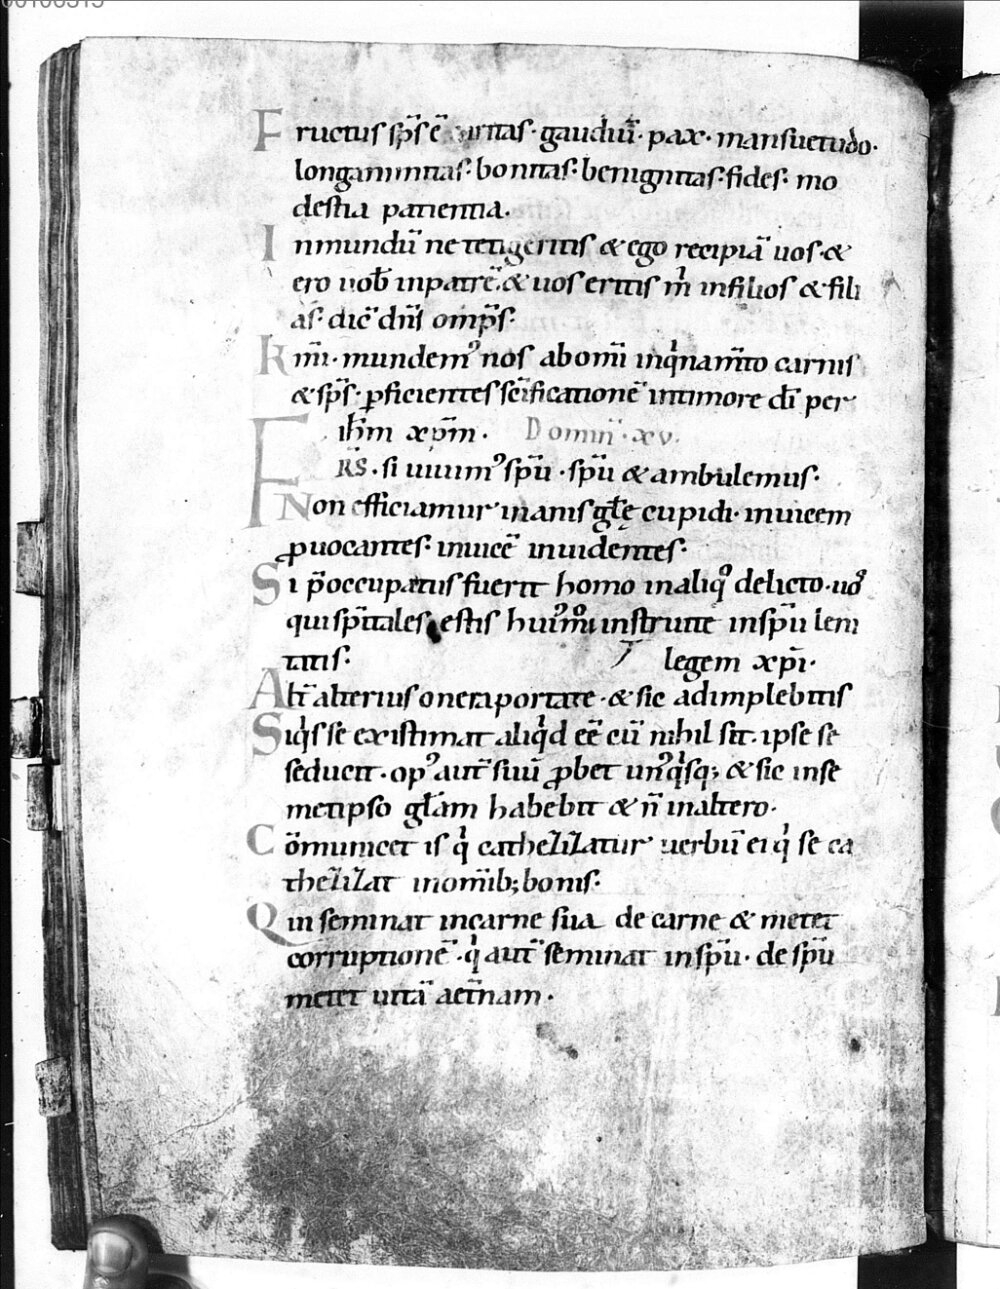 Fructus sp̄s ē caritas· gaudiū· pax· mansuetudo·
longanimitas· bonitas· benignitas· fides· mo
destia patientia.
Inmundū ne tetigeritis & ego recipiā uos· &
ero uob̄ inpatrē· & uos eritis m̍ infilios & fili
as· dic̄ dn̄s omp̄s·
Km̄i· mundemꝰ nos abom̄i inq̍namt̄o carnis
& sp̄s· ꝓficientes sc̄ificationē intimore dī per
ih̄m xp̄m· Domin̄· xv·
FRS̄· si uiuimꝰ sp̄u· sp̄u & ambulemus·
Non efficiamur inanis gl̄ę cupidi· inuicem
ꝓuocantes· inuicē inuidentes·
Si p̄occupatus fuerit homo inaliqͦ delicto· uoˢ
qui sp̄itales estis huiꝰmͦi instruite insp̄u leni
tatis· legem xp̄i·
Alt̄ alterius onera portate· & sic adimplebitis
Siq̍s se existimat aliq̍d eē cū nihil sit· ipse se
seducit· opꝰ aut̄ suū ꝓbet unꝰq̍sq; & sic inse
metipso gl̄am habebit & n̄ inaltero·
Cōmunicet is q̍ cathezizatur uerbū ei q̍ se ca
thezizat inomīb; bonis·
Qui seminat incarne sua de carne & metet
corruptionē· q̍ aut̄ seminat insp̄u· de sp̄u
metet uitā aet̄nam·